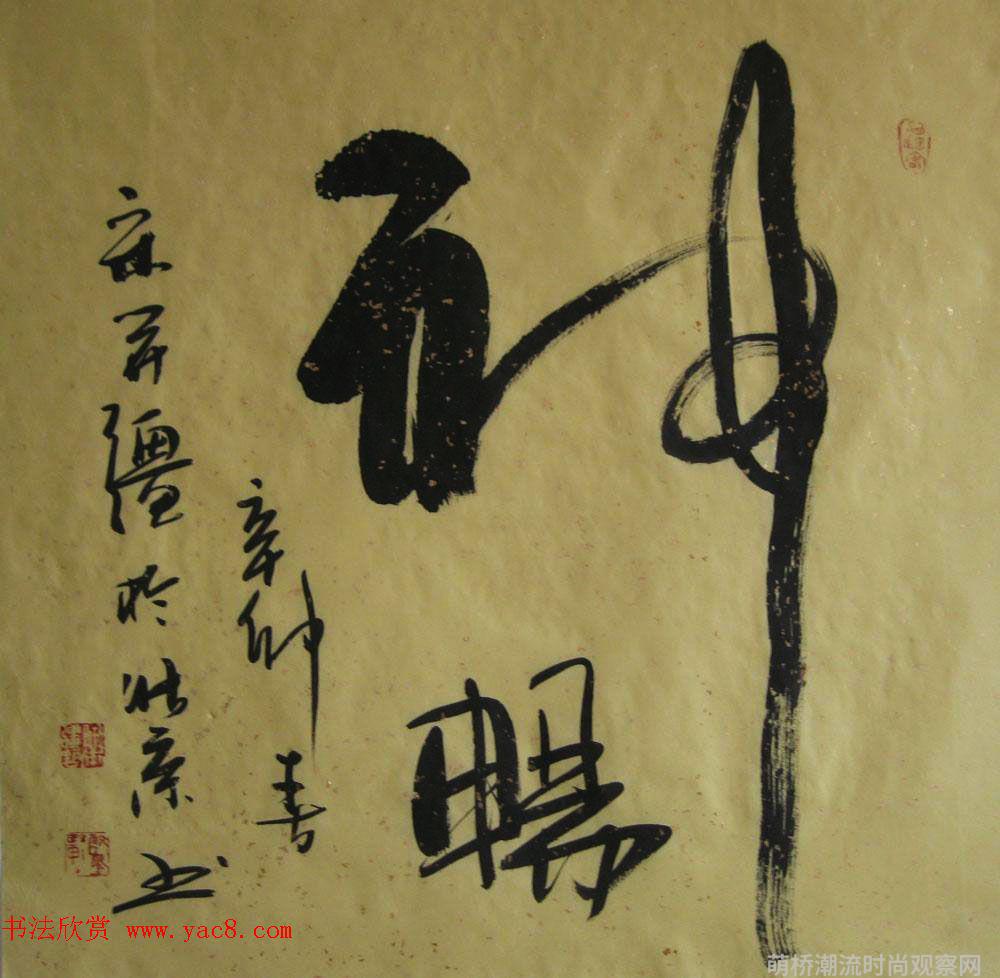 神暢
辛卯春
宋开疆於北京书
书法欣赏 www.yac8.com
萌桥潮流时尚观察网